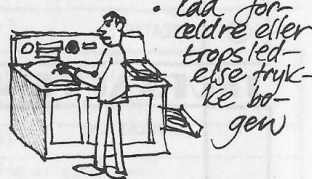 • Lad for-
ældre eller
tropsled-
else tryk-
ke bo-
gen